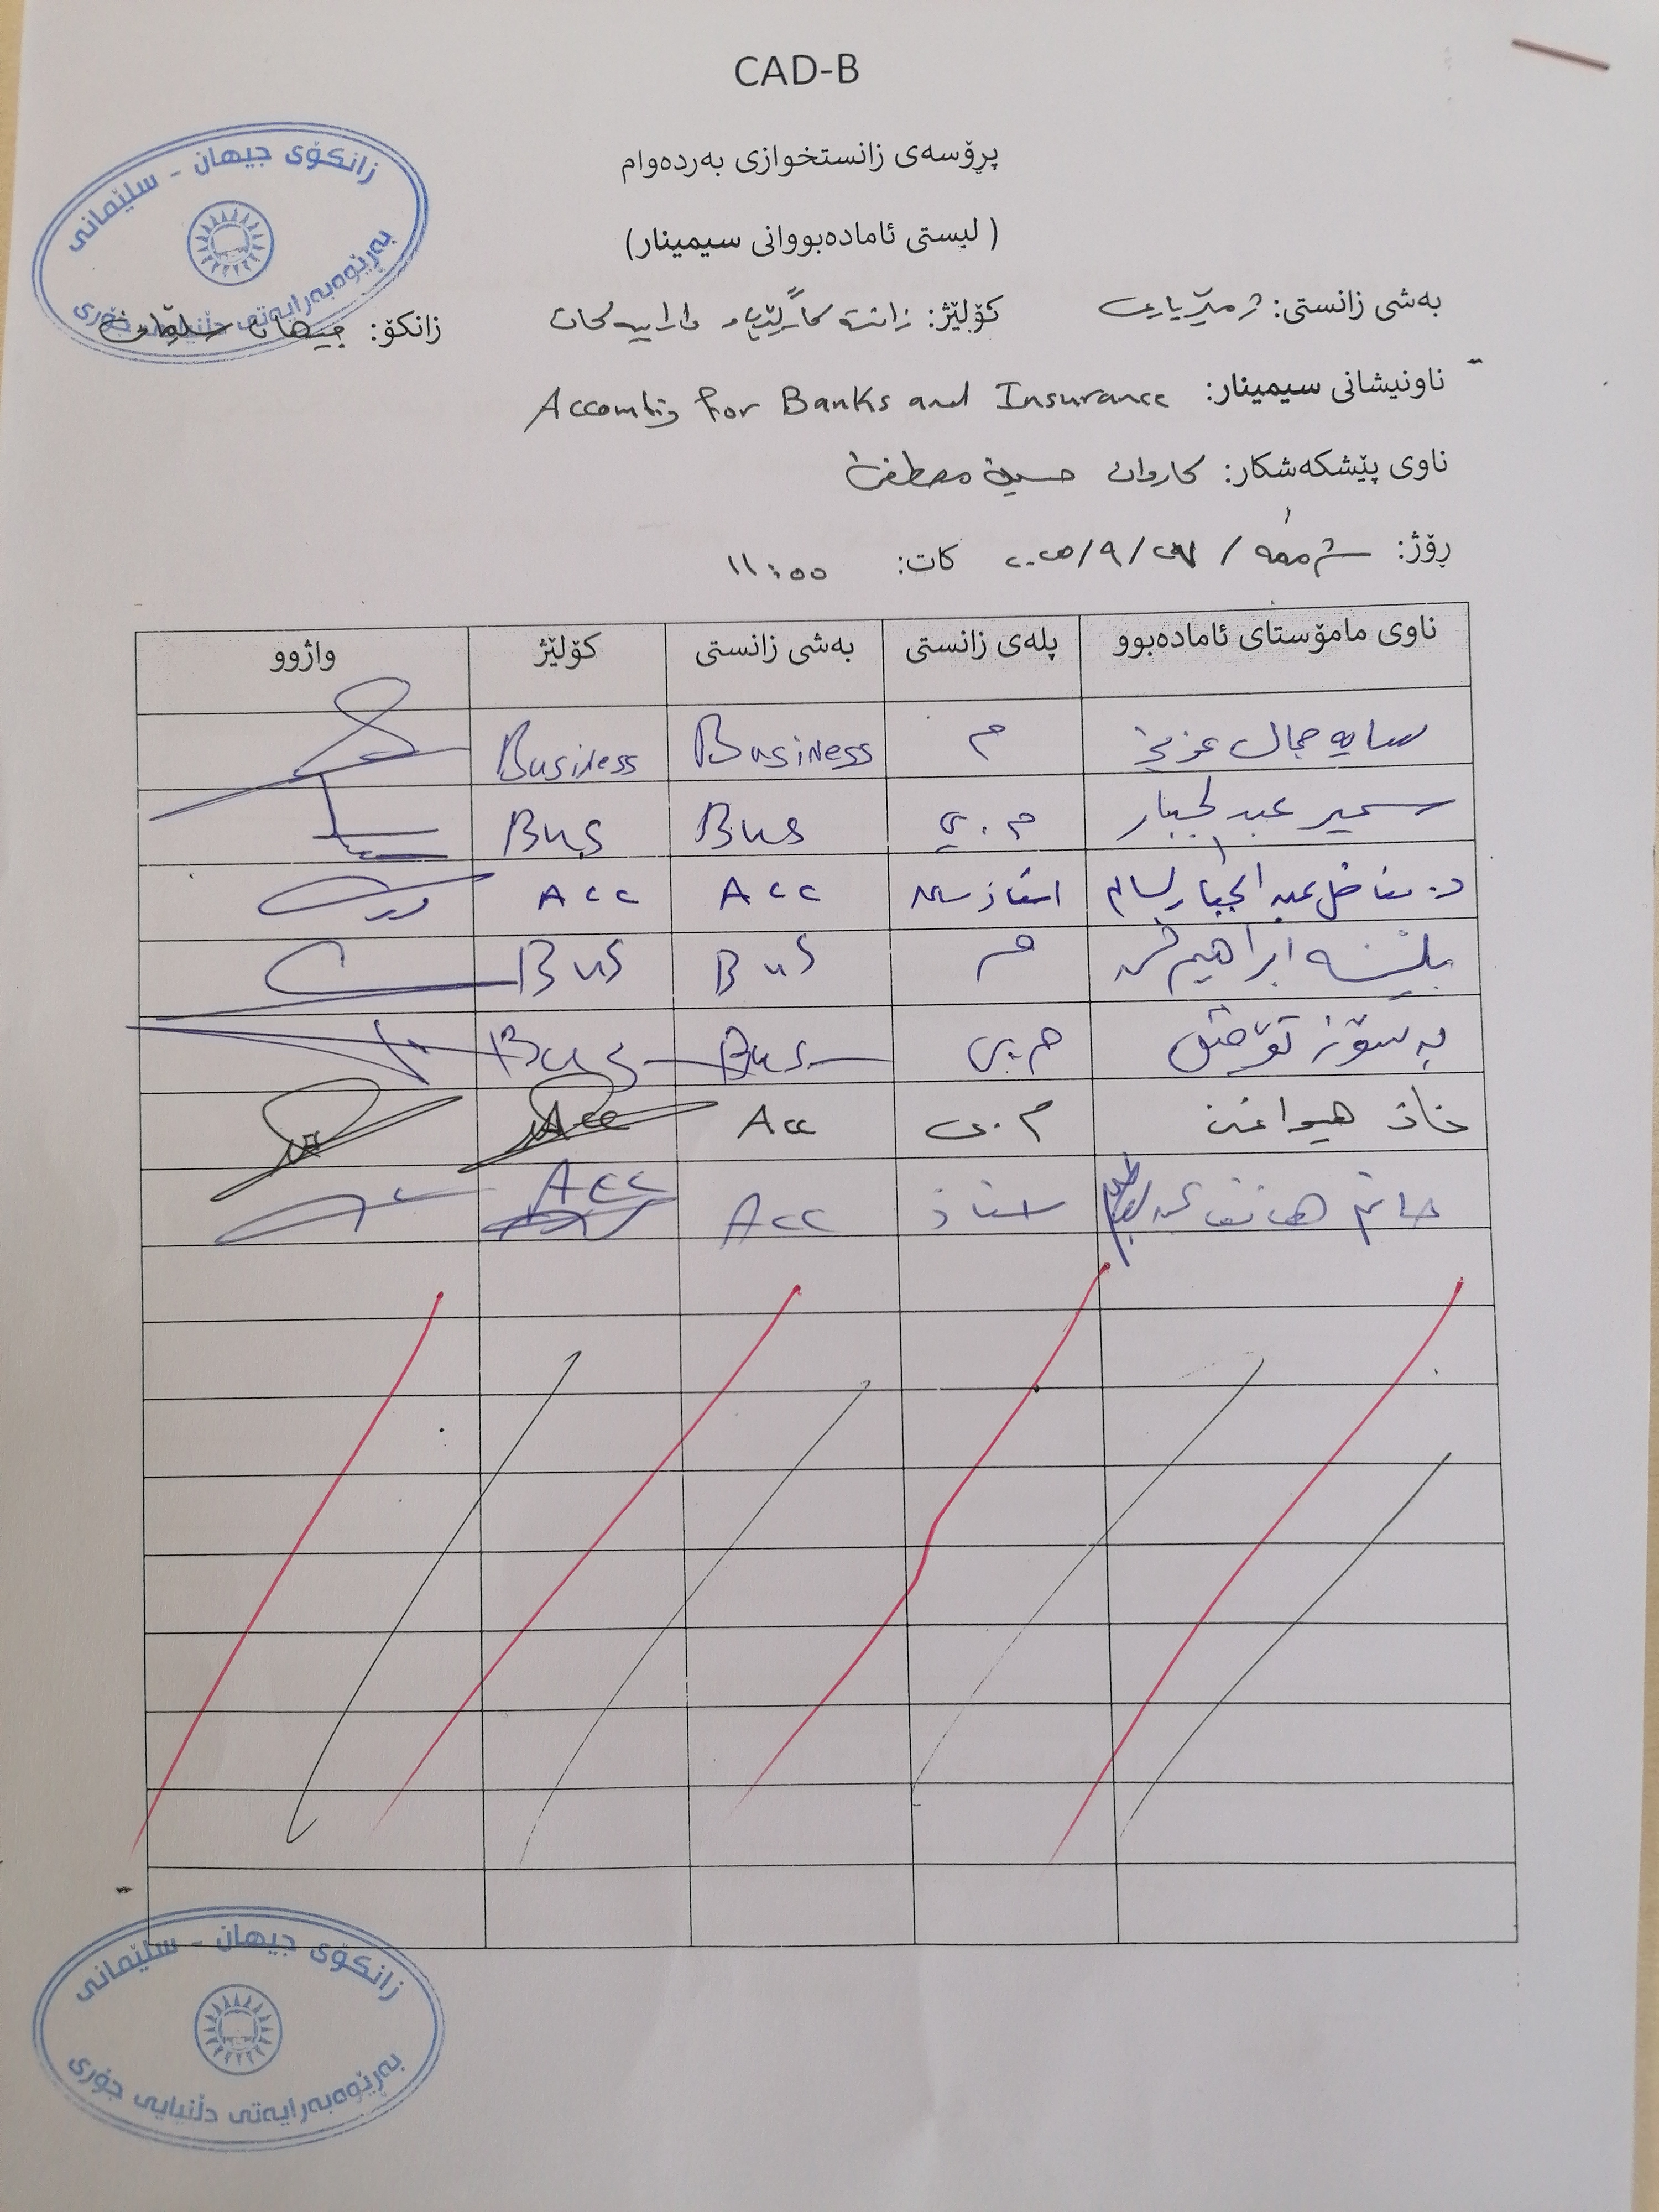 CAD-B
پرۆسەی زانستخوازی بەردەوام
( لیستی ئامادەبووانی سیمینار)
زانکۆی جیهان - سلێمانی
بەڕێوەبەرایەتی دڵنیایی جۆری
بەشی زانستی: ژمێریاری کۆلێژ: زانستە کارگێڕی و داراییەکان زانکۆ: جیهان سلێمانی
ناونیشانی سیمینار: Accounting for Banks and Insurance
ناوی پێشکەشکار: کاروان حسین مصطفی
ڕۆژ: شەممە / ٢٧ / ٩ / ٢٠٢٥ کات: ١١:٠٠
ناوی مامۆستای ئامادەبوو پلەی زانستی بەشی زانستی کۆلێژ واژوو
سایە جمال عزیز م Business Business
سمیر عبدالجبار م.ی Bus Bus
د. مناضل عبدالجبار سالم استاذ Acc Acc
ابراهیم م Bus Bus
بە سۆز تۆفیق م.ی Bus Bus
هیوا م.ی Acc Acc
حاتم استاذ Acc Acc
زانکۆی جیهان - سلێمانی
بەڕێوەبەرایەتی دڵنیایی جۆری